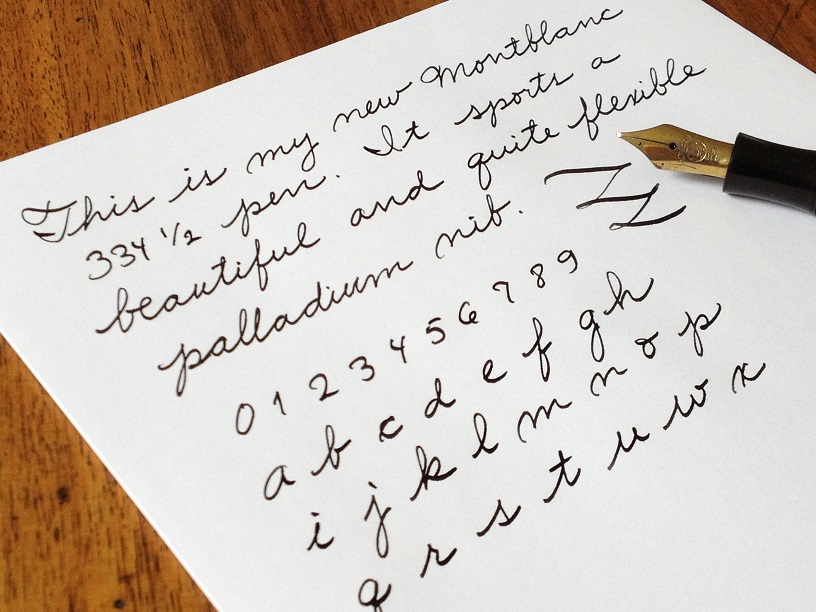 This is my new Montblanc
334 1/2 pen. It sports a
beautiful and quite flexible
palladium nib.
0 1 2 3 4 5 6 7 8 9
a b c d e f g h
i j k l m n o p
q r s t u w x